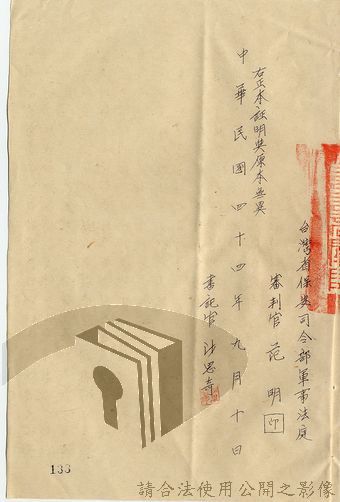 台灣省保安司令部軍事法庭
審判官 范明 印
右正本証明與原本無異
中華民國四十四年九月十日
書記官
133
請合法使用公開之影像